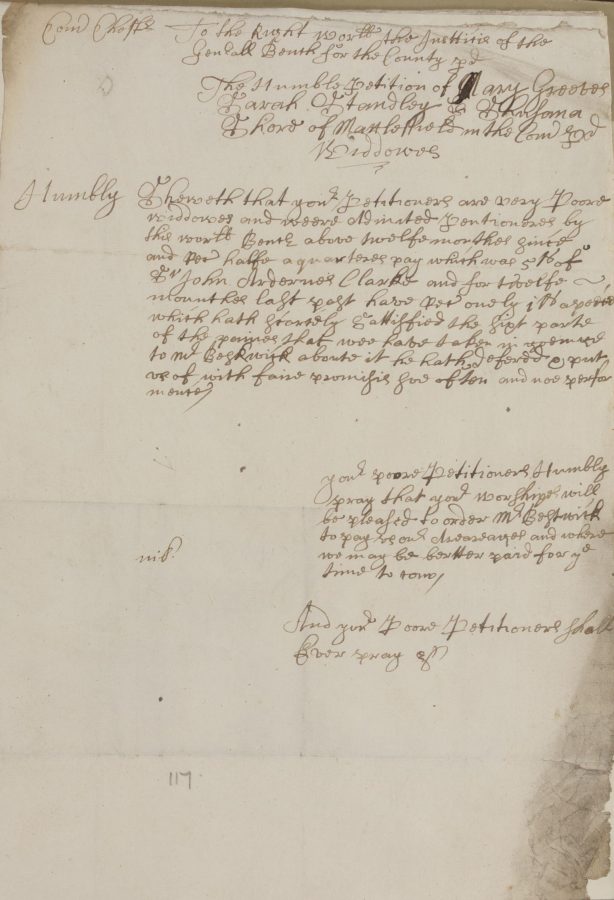 Com Cestr To the Right Worll the Justices of the
Generall Bench for the County pd
The Humble Petition of Mary Greeves
Sarah Standley & Shusana
Shore of Mackleffield in the Com pd
Widdowes
Humbly Sheweth that yor Petitioners are very Poore
widdowes and weere Admitted Pentioneres by
this worll Bench above twelfe monthes since
and Recd halfe a quarteres pay which was 5s of
Sr John Ardernes Clarke and for twelfe
mounthes last past have Recd onely 1s a peece
which hath scarcely sattisfied the sixt parte
of the paynes that wee have taken in
to Mr Beswick aboute it he hath defered & put
us of with faire promisis soe often and noe perfor
mence
yor poore Petitioners Humbly
pray that yor worshipes will
be pleased to order Mr Beswick
to pay us our Areareages and where
we may be bertter paid for ye
time to com
And yor Poore Petitioners shall
Ever pray &c
nil
117